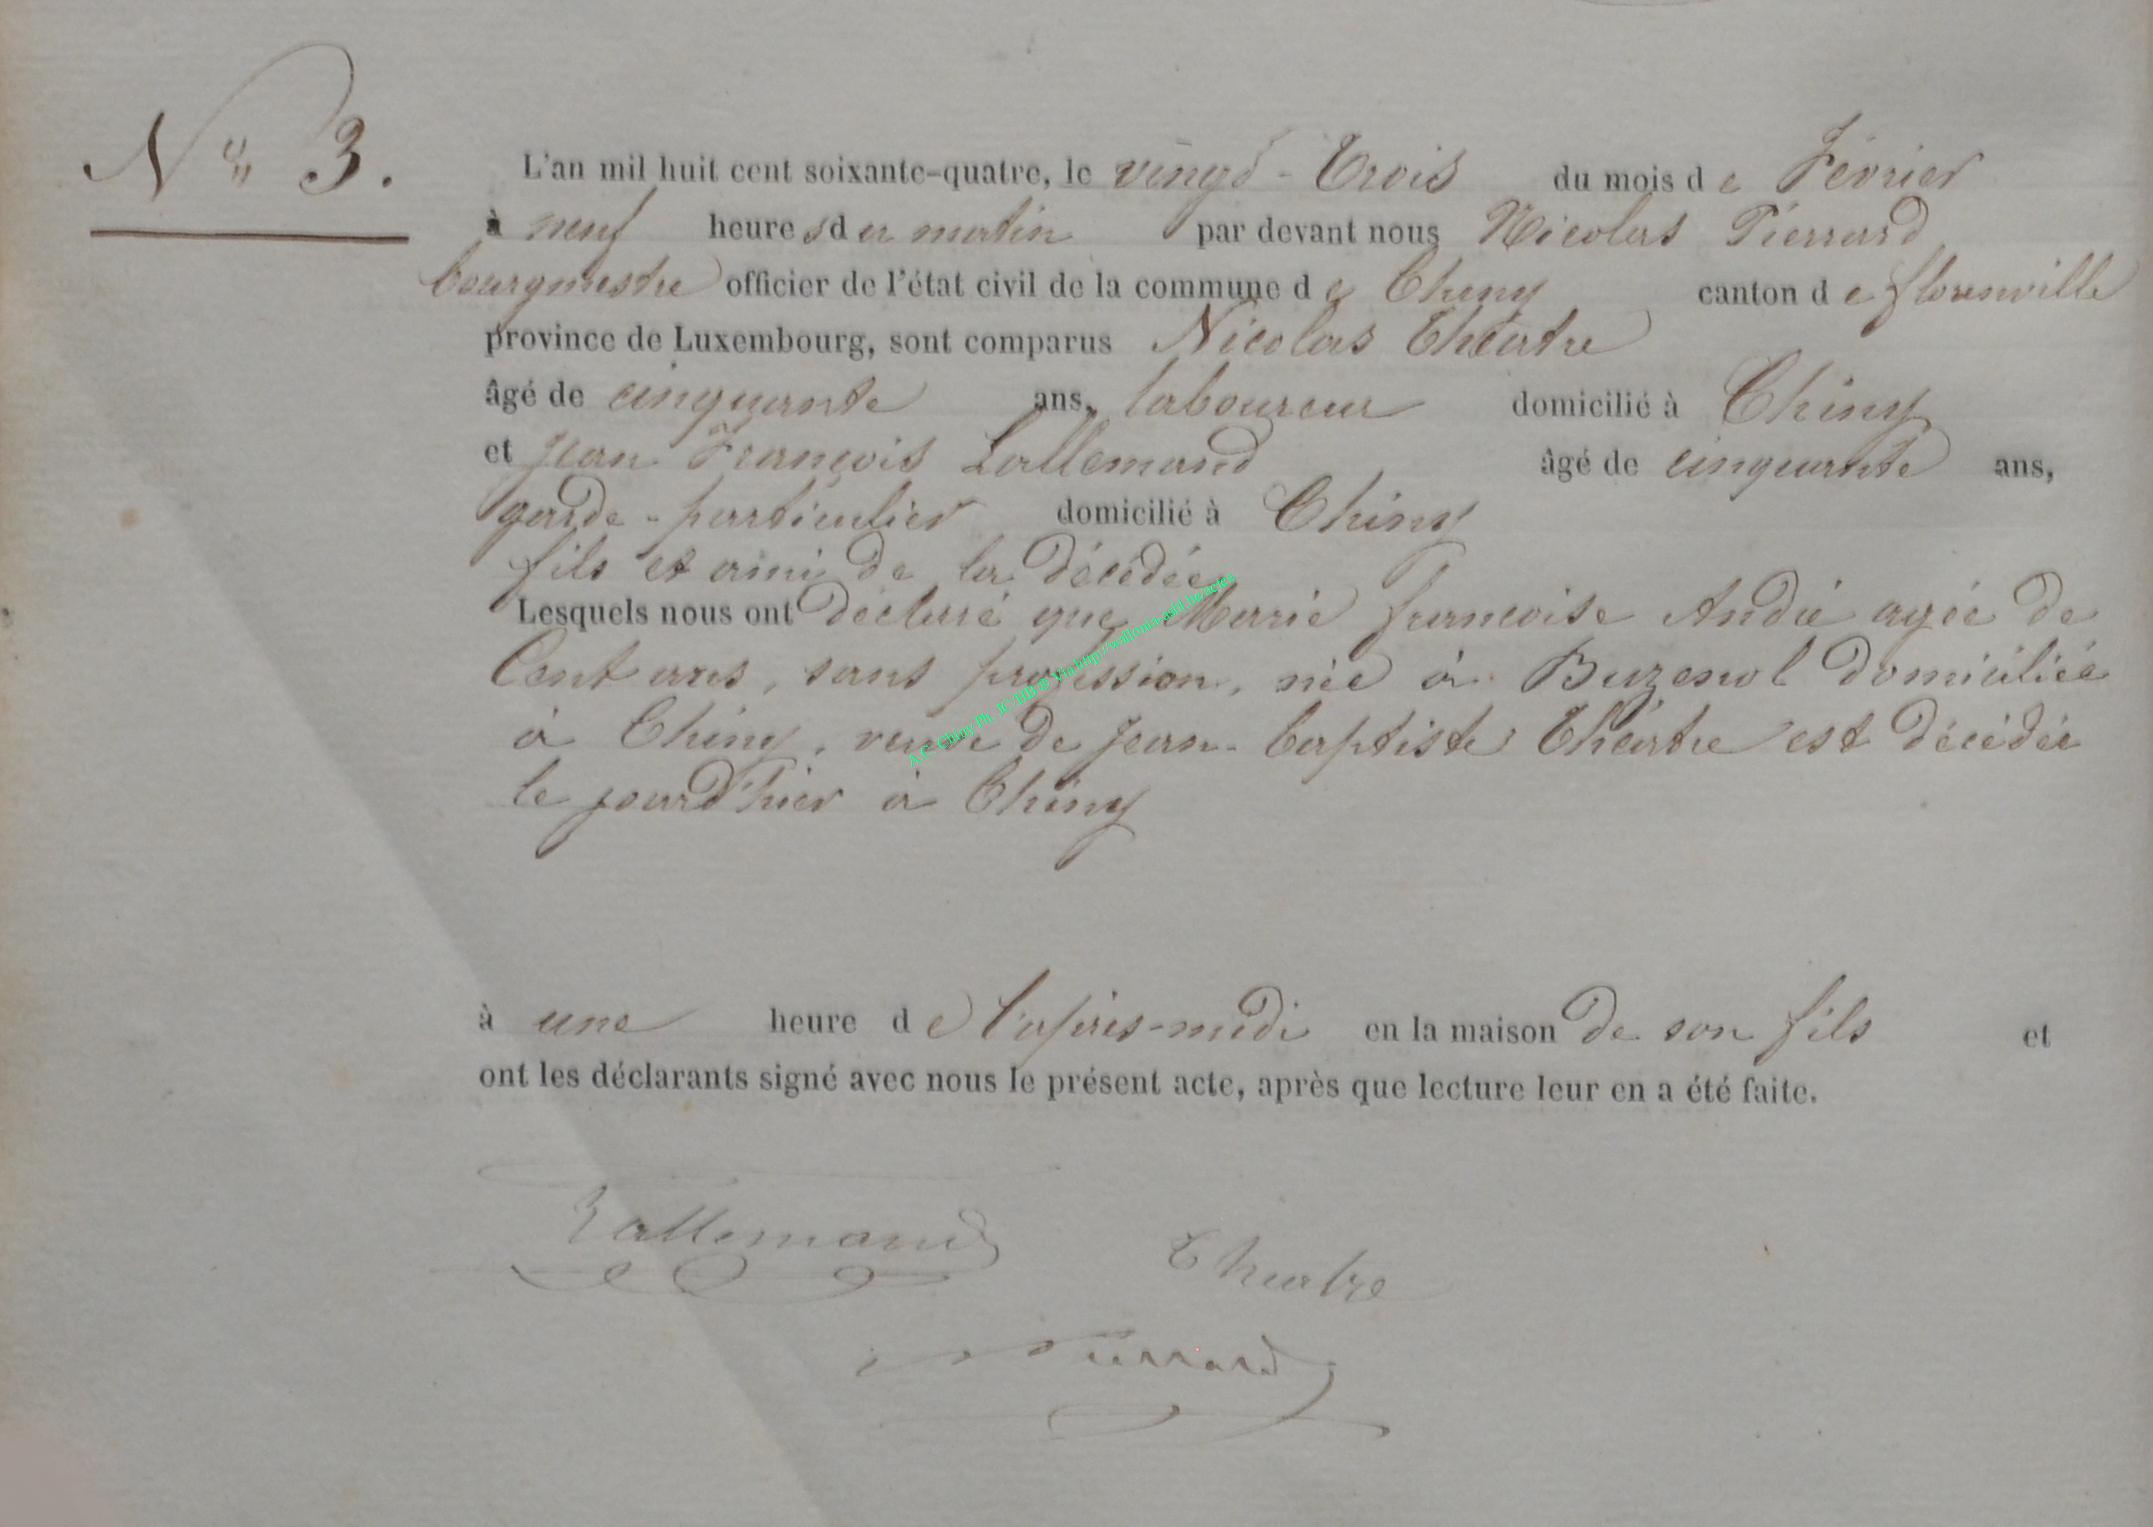 N° 3.
L'an mil huit cent soixante-quatre, le vingt-trois du mois de Février
à neuf heures du matin par devant nous Nicolas Pierrard
bourgmestre officier de l'état civil de la commune de Chiny canton de florenville
province de Luxembourg, sont comparus Nicolas Théatre
âgé de cinquante ans, laboureur domicilié à Chiny
et Jean François Lallemand âgé de cinquante ans,
garde-particulier domicilié à Chiny
fils et ami de la décédée
Lesquels nous ont déclaré que Marie françoise André agée de
Cent ans, sans profession, née à Buzenol domiciliée
à Chiny, veuve de Jean-baptiste Théatre est décédée
le jourd'hier à Chiny
à une heure de l'après-midi en la maison de son fils et
ont les déclarants signé avec nous le présent acte, après que lecture leur en a été faite.
Lallemand Theatre
Pierrard
A.C. Chiny Ph. JC/MD © Via http://wallonia-asbl.be/actes